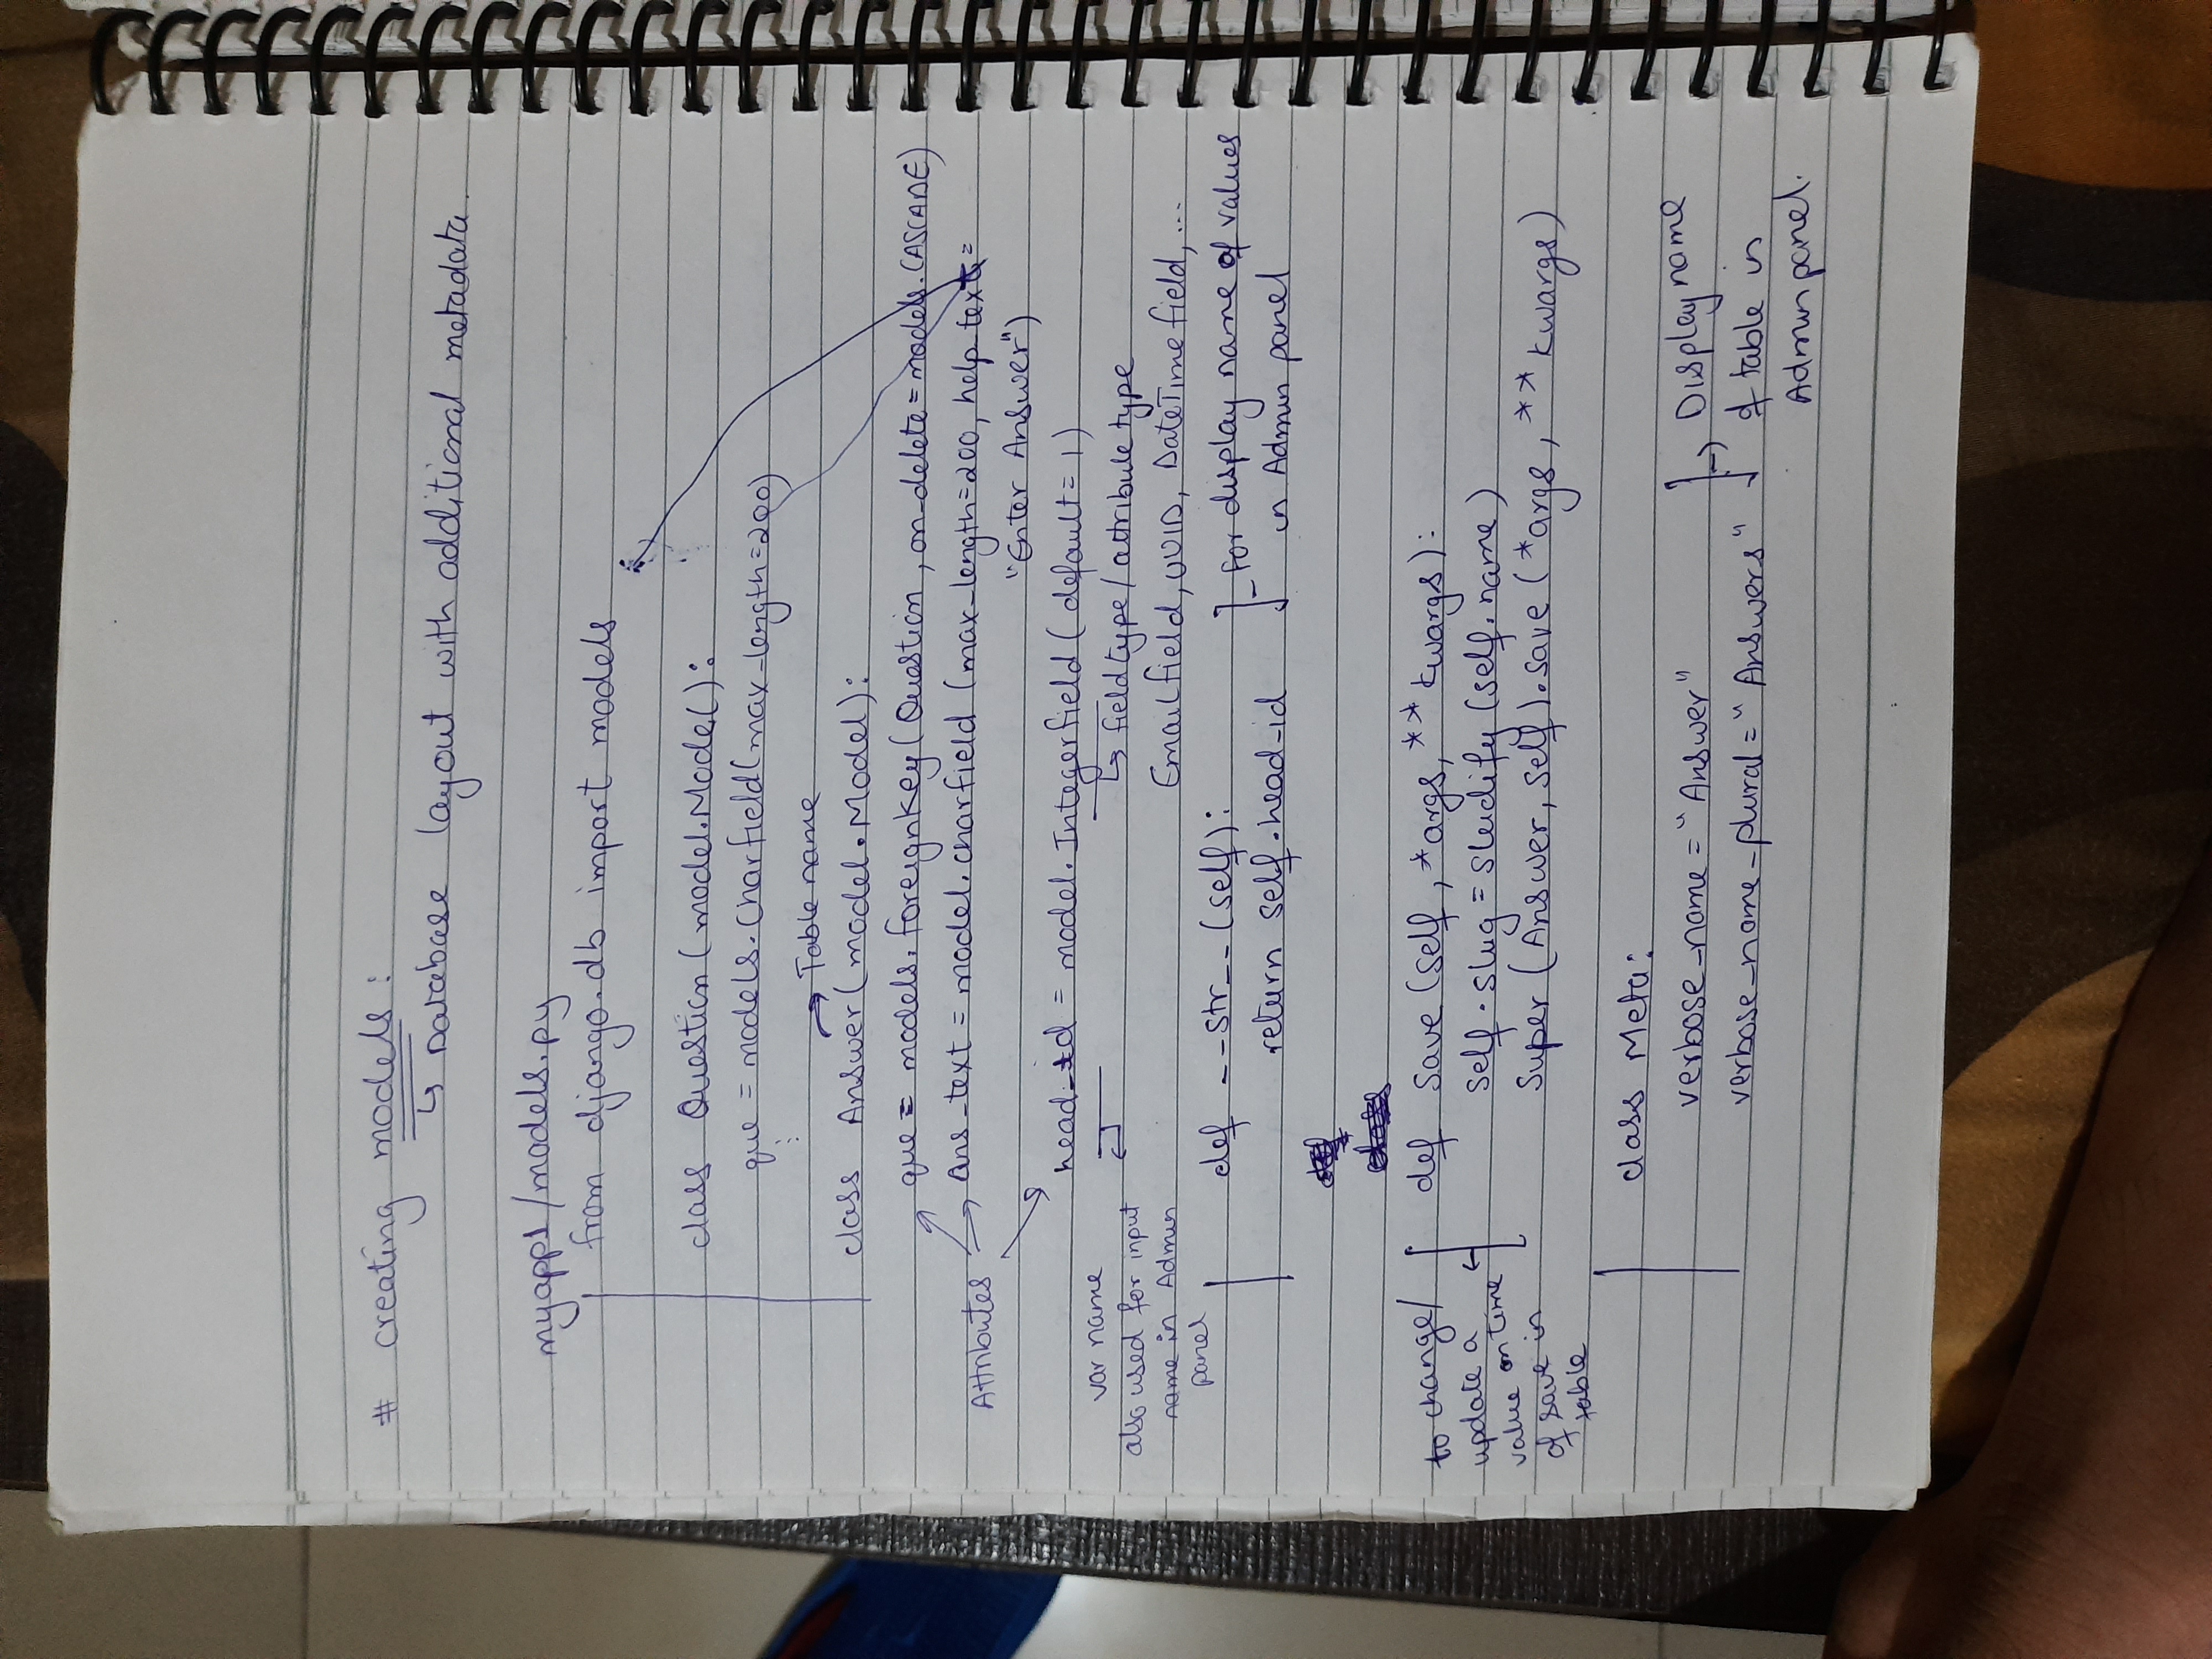 # creating models:
↳ Database layout with additional metadata.
myapp1/models.py
from django.db import models
class Question (model.Model():
que = models.Charfield(max_length=200)
⋮
→ Table name
class Answer (model.Model):
que = models.foreignkey (Question, on_delete=models.CASCADE)
Attributes
Ans_text = model.charfield (max_length=200, help_text=
"Enter Answer")
head_id = model.Integerfield (default=1)
var name
also used for input
name in Admin
panel
↳ fieldtype/attribute type
Emailfield, UUID, DateTimefield, ...
def __str__(self):
return self.head_id
for display name of values
in Admin panel
def save (self, *args, **kwargs):
self.slug = sludify (self.name)
super (Answer, self).save (*args, **kwargs)
to change/
update a
value on time
of save in
table
class Meta:
verbose_name = "Answer"
verbose_name_plural = "Answers"
Display name
of table in
Admin panel.